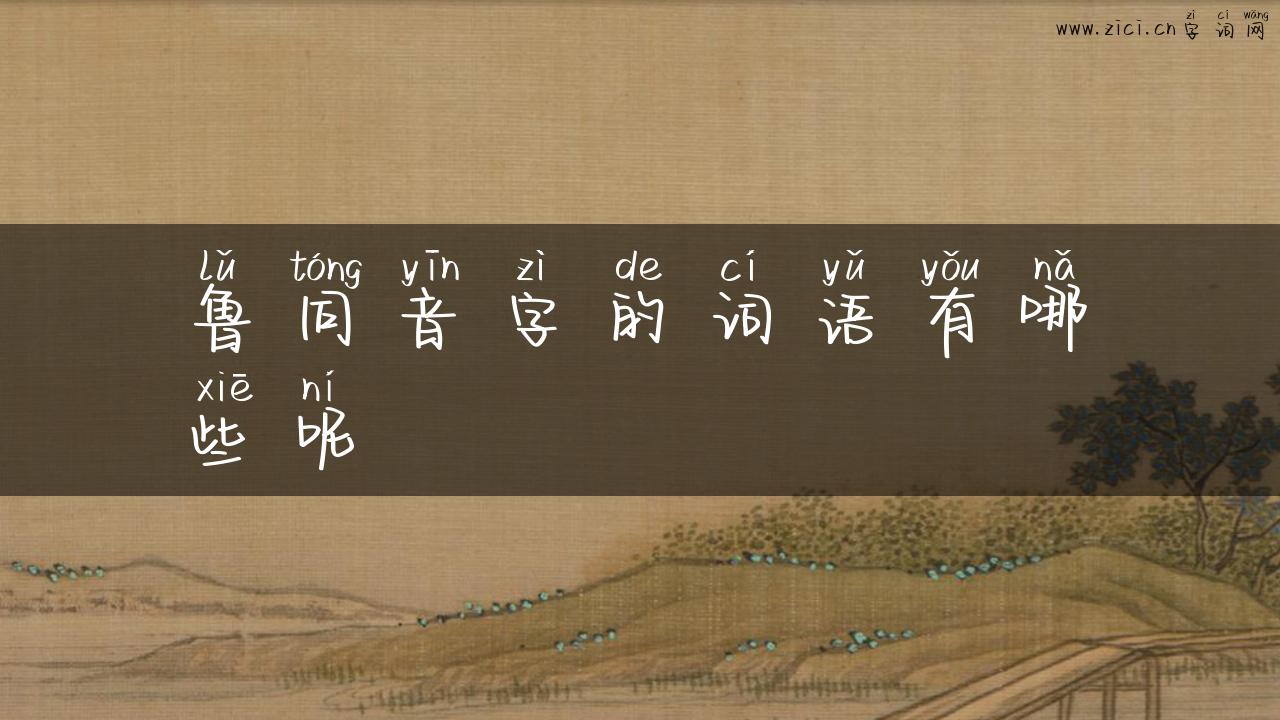 zì cí wǎng
www.zici.cn 字词网
lǔ tóng yīn zì de cí yǔ yǒu nǎ
鲁同音字的词语有哪
xiē ní
些呢